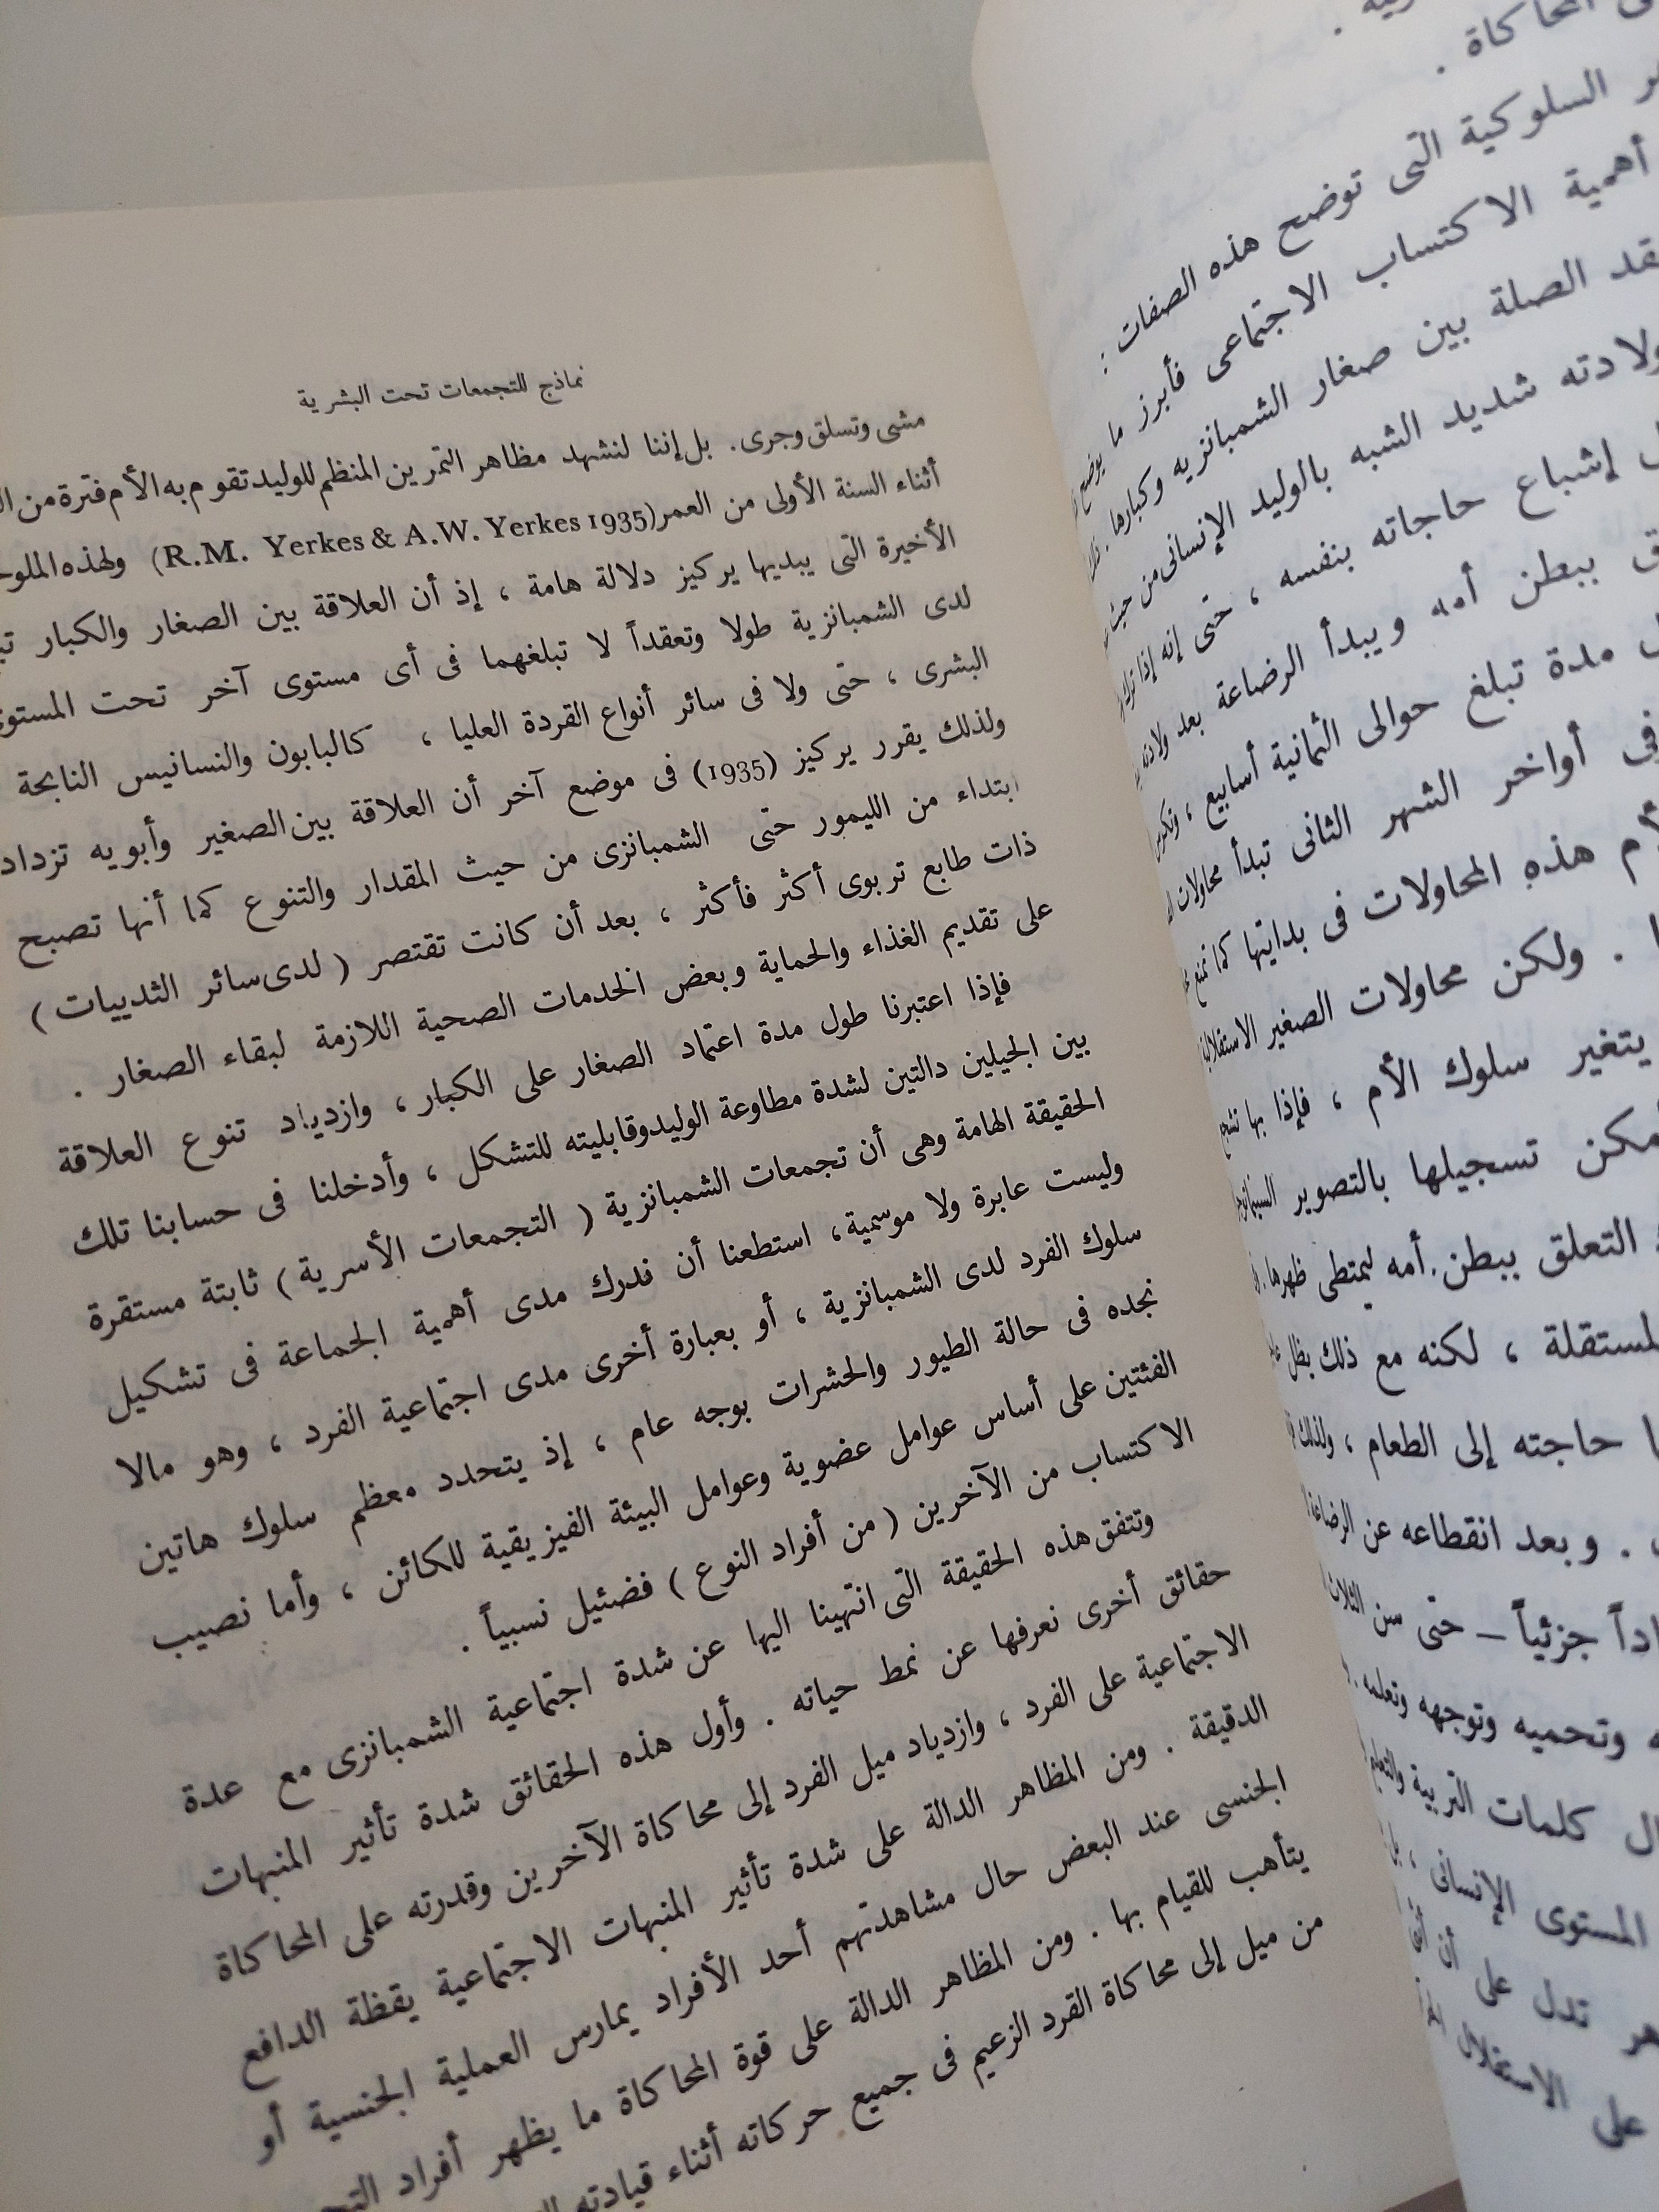 المحاكاة .
السلوكية التى توضح هذه الصفات :
أهمية الاكتساب الاجتماعى فأبرز ما يوضح
الصلة بين صغار الشمبانزيه وكبارها .
ولادته شديد الشبه بالوليد الإنسانى من حيث
إشباع حاجاته بنفسه ، حتى إنه إذا ترك
ببطن أمه ويبدأ الرضاعة بعد ولادته
مدة تبلغ حوالى الثمانية أسابيع ،
فى أواخر الشهر الثانى تبدأ محاولات
هذه المحاولات فى بدايتها كما تمنع
. ولكن محاولات الصغير الاستقلالية
يتغير سلوك الأم ، فإذا بها تشجع
تسجيلها بالتصوير
التعلق ببطن أمه ليمتطى ظهرها .
، لكنه مع ذلك يظل
حاجته إلى الطعام ، ولذلك
. وبعد انقطاعه عن الرضاعة
جزئياً – حتى سن الثلاث
وتحميه وتوجهه وتعلمه .
كلمات التربية والتعليم
المستوى الإنسانى ،
تدل على أن
على الاستقلال
نماذج للتجمعات تحت البشرية
مشى وتسلق وجرى . بل إننا لنشهد مظاهر التمرين المنظم للوليد تقوم به الأم فترة من
أثناء السنة الأولى من العمر (R.M. Yerkes & A.W. Yerkes 1935) ولهذه
الأخيرة التى يبديها يركيز دلالة هامة ، إذ أن العلاقة بين الصغار والكبار
لدى الشمبانزية طولا وتعقداً لا تبلغهما فى أى مستوى آخر تحت المستوى
البشرى ، حتى ولا فى سائر أنواع القردة العليا ، كالبابون والنسانيس النابحة
ولذلك يقرر يركيز (1935) فى موضع آخر أن العلاقة بين الصغير وأبويه تزداد
ابتداء من الليمور حتى الشمبانزى من حيث المقدار والتنوع كما أنها تصبح
ذات طابع تربوى أكثر فأكثر ، بعد أن كانت تقتصر ( لدى سائر الثدييات )
على تقديم الغذاء والحماية وبعض الخدمات الصحية اللازمة لبقاء الصغار .
فإذا اعتبرنا طول مدة اعتماد الصغار على الكبار ، وازدياد تنوع العلاقة
بين الجيلين دالتين لشدة مطاوعة الوليد وقابليته للتشكل ، وأدخلنا فى حسابنا تلك
الحقيقة الهامة وهى أن تجمعات الشمبانزية ( التجمعات الأسرية ) ثابتة مستقرة
وليست عابرة ولا موسمية ، استطعنا أن ندرك مدى أهمية الجماعة فى تشكيل
سلوك الفرد لدى الشمبانزية ، أو بعبارة أخرى مدى اجتماعية الفرد ، وهو مالا
نجده فى حالة الطيور والحشرات بوجه عام ، إذ يتحدد معظم سلوك هاتين
الفئتين على أساس عوامل عضوية وعوامل البيئة الفيزيقية للكائن ، وأما نصيب
الاكتساب من الآخرين ( من أفراد النوع ) فضئيل نسبياً .
وتتفق هذه الحقيقة التى انتهينا اليها عن شدة اجتماعية الشمبانزى مع عدة
حقائق أخرى نعرفها عن نمط حياته . وأول هذه الحقائق شدة تأثير المنبهات
الاجتماعية على الفرد ، وازدياد ميل الفرد إلى محاكاة الآخرين وقدرته على المحاكاة
الدقيقة . ومن المظاهر الدالة على شدة تأثير المنبهات الاجتماعية يقظة الدافع
الجنسى عند البعض حال مشاهدتهم أحد الأفراد يمارس العملية الجنسية أو
يتأهب للقيام بها . ومن المظاهر الدالة على قوة المحاكاة ما يظهر أفراد
من ميل إلى محاكاة القرد الزعيم فى جميع حركاته أثناء قيادته